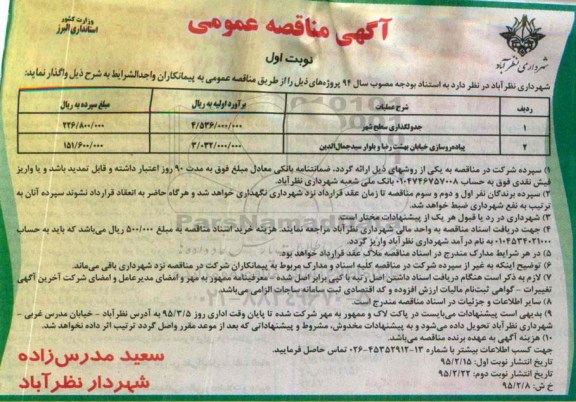 آگهی مناقصه عمومی
وزارت کشور
استانداری البرز
نوبت اول
شهرداری نظرآباد
شهرداری نظرآباد در نظر دارد به استناد بودجه مصوب سال ۹۴ پروژه‌های ذیل را از طریق مناقصه عمومی به پیمانکاران واجدالشرایط به شرح ذیل واگذار نماید:
ردیف شرح عملیات برآورد اولیه به ریال مبلغ سپرده به ریال
۱ جدولگذاری سطح شهر ۴/۵۳۶/۰۰۰/۰۰۰ ۲۲۶/۸۰۰/۰۰۰
۲ پیاده‌روسازی خیابان بهشت رضا و بلوار سیدجمال‌الدین ۳/۰۳۲/۰۰۰/۰۰۰ ۱۵۱/۶۰۰/۰۰۰
۱) سپرده شرکت در مناقصه به یکی از روشهای ذیل ارائه گردد، ضمانتنامه بانکی معادل مبلغ فوق به مدت ۹۰ روز اعتبار داشته و قابل تمدید باشد و یا واریز
فیش نقدی فوق به حساب ۰۱۰۴۷۴۶۷۵۷۰۰۸ بانک ملی شعبه شهرداری نظرآباد.
۲) سپرده برندگان نفر اول و دوم و سوم مناقصه تا زمان عقد قرارداد نزد شهرداری نگهداری خواهد شد و هرگاه حاضر به انعقاد قرارداد نشوند سپرده آنان به
ترتیب به نفع شهرداری ضبط خواهد شد.
۳) شهرداری در رد یا قبول هر یک از پیشنهادات مختار است.
۴) جهت دریافت اسناد مناقصه به واحد مالی شهرداری نظرآباد مراجعه نمایند. هزینه خرید اسناد مناقصه به مبلغ ۵۰۰/۰۰۰ ریال می‌باشد که باید به حساب
۰۱۰۴۵۳۴۰۲۱۰۰۰ به نام درآمد شهرداری نظرآباد واریز گردد.
۵) در هر شرایط مدارک مندرج در اسناد مناقصه ملاک عقد قرارداد خواهد بود.
۶) توضیح اینکه به غیر از سپرده شرکت در مناقصه کلیه اسناد و مدارک مربوط به پیمانکاران شرکت در مناقصه نزد شهرداری باقی می‌ماند.
۷) لازم به ذکر است هنگام دریافت اسناد داشتن اصل رتبه با کپی برابر اصل شده - معرفینامه ممهور به مهر و امضای مدیرعامل و امضای شرکت آخرین آگهی
تغییرات - گواهی ثبت‌نام مالیات ارزش افزوده و کد اقتصادی ثبت سامانه ساجات الزامی می‌باشد.
۸) سایر اطلاعات و جزئیات در اسناد مناقصه مندرج است.
۹) بدیهی است پیشنهادات می‌بایست در پاکت لاک و ممهور به مهر شرکت شده تا پایان وقت اداری روز ۹۵/۳/۵ به آدرس نظرآباد - خیابان مدرس غربی -
شهرداری نظرآباد تحویل داده می‌شود و به پیشنهادات مخدوش، مشروط و پیشنهاداتی که بعد از موعد مقرر واصل گردد ترتیب اثر داده نخواهد شد.
۱۰) هزینه آگهی به عهده برنده مناقصه می‌باشد.
جهت کسب اطلاعات بیشتر با شماره ۱۳-۴۵۳۵۲۹۱۲-۰۲۶ تماس حاصل فرمایید.
تاریخ انتشار نوبت اول: ۹۵/۲/۱۵
تاریخ انتشار نوبت دوم: ۹۵/۲/۲۲
خ ش: ۹۵/۲/۸
سعید مدرس‌زاده
شهردار نظرآباد
ParsNamad